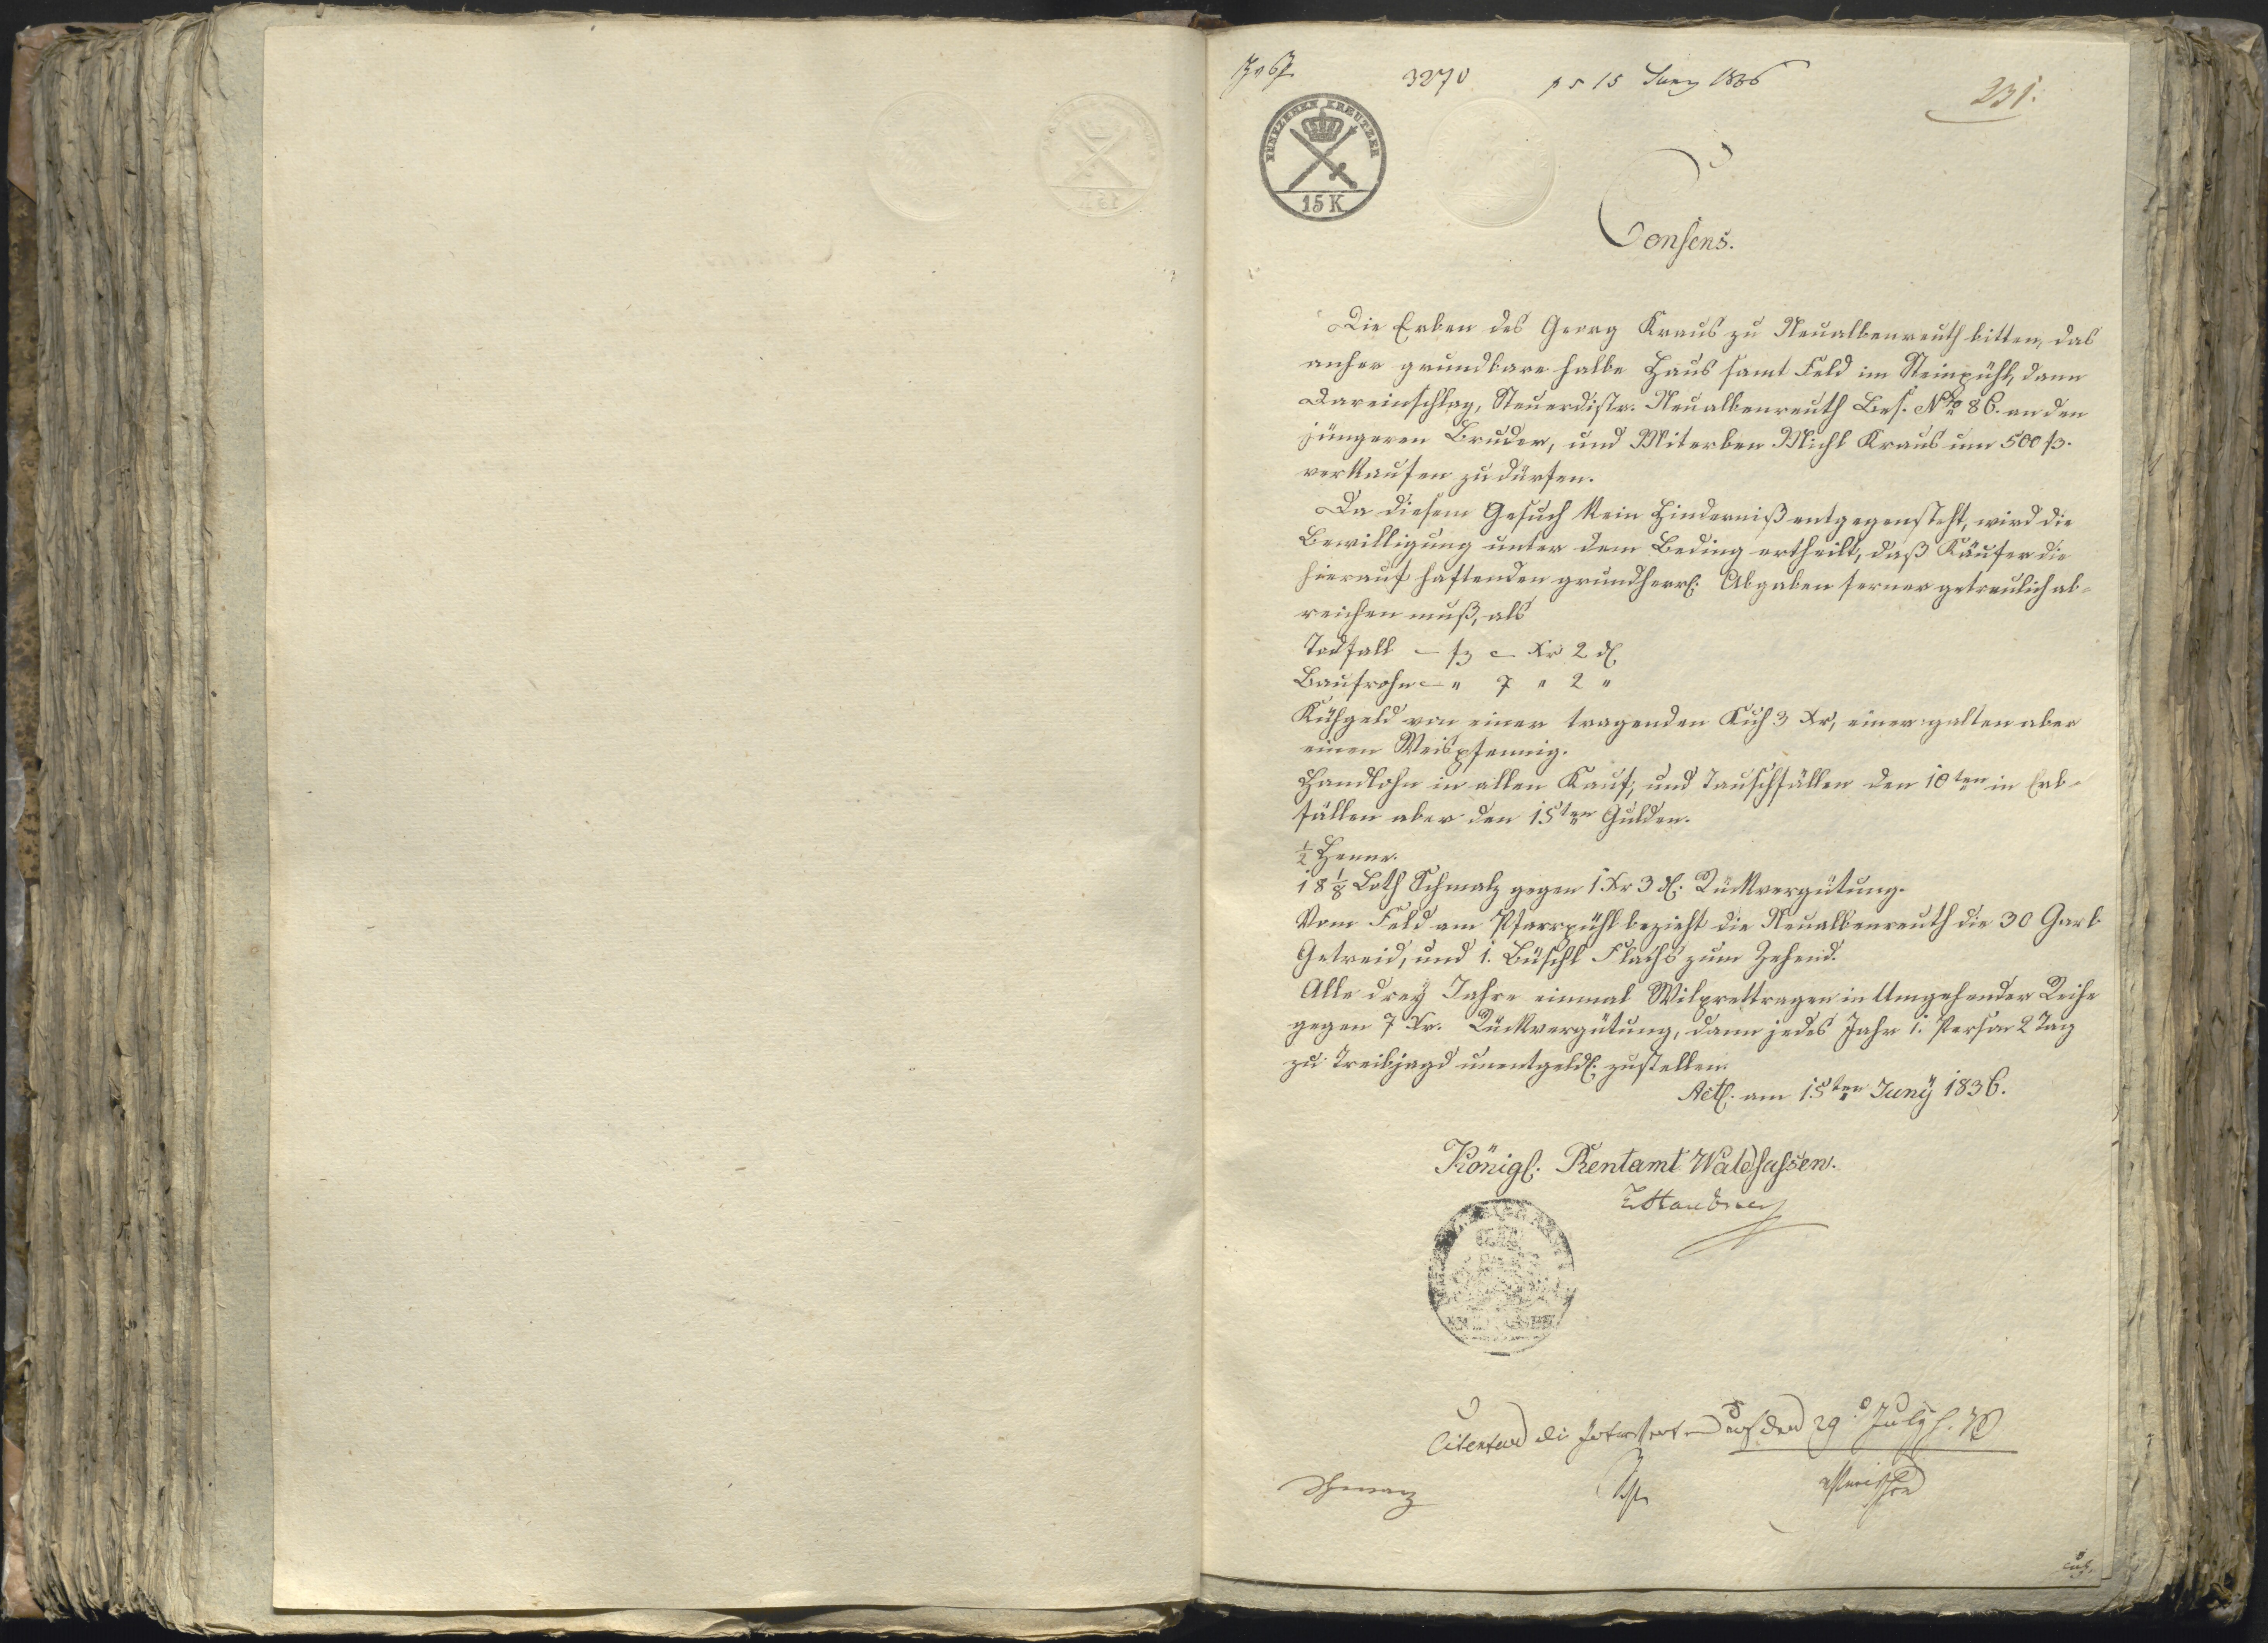 3270
ps 15 Juny 1836
231.
FÜNFZEHEN KREUTZER
15 K
Consens.
Die Erben des Georg Kraus zu Neualbenreuth bitten, das
anher grundbare halbe Haus samt Feld im Steinpühl, dann
Dareinschlag, Steuerdistr. Neualbenreuth Bes. Nro 86. an den
jüngeren Bruder, und Miterben Michl Kraus um 500 f.
verkaufen zu dürfen.
Da diesem Gesuch kein Hinderniß entgegensteht, wird die
Bewilligung unter dem Beding ertheilt, daß Käufer die
hierauf haftenden grundherrl. Abgaben ferner getreulich ab-
reichen muß, als
Todfall — f — Xr 2 d
Baufrohn — " 7 " 2 "
Kühgeld von einer tragenden Kuh 3 Xr, einer galten aber
einen Weispfennig.
Handlohn in allen Kauf, und Tauschfällen den 10ten in Erb-
fällen aber den 15ten Gulden.
½ Henne.
18 1/8 Loth Schmalz gegen 1 Xr 3 d. Rückvergütung.
Vom Feld am Pfarrpühl bezieht die Neualbenreuth die 30 Garb
Getreid, und 1. Büschl Flachs zum Zehend.
Alle dreÿ Jahre einmal Wilprettragen in Umgehender Reihe
gegen 7 Xr. Rückvergütung, dann jedes Jahr 1. Person 2 Tag
zu Treibjagd unentgeldl. zustellen.
Actl. am 15ten Junÿ 1836.
Königl. Rentamt Waldsassen.
Citentur die Interessenten auf den 29. July h. J.